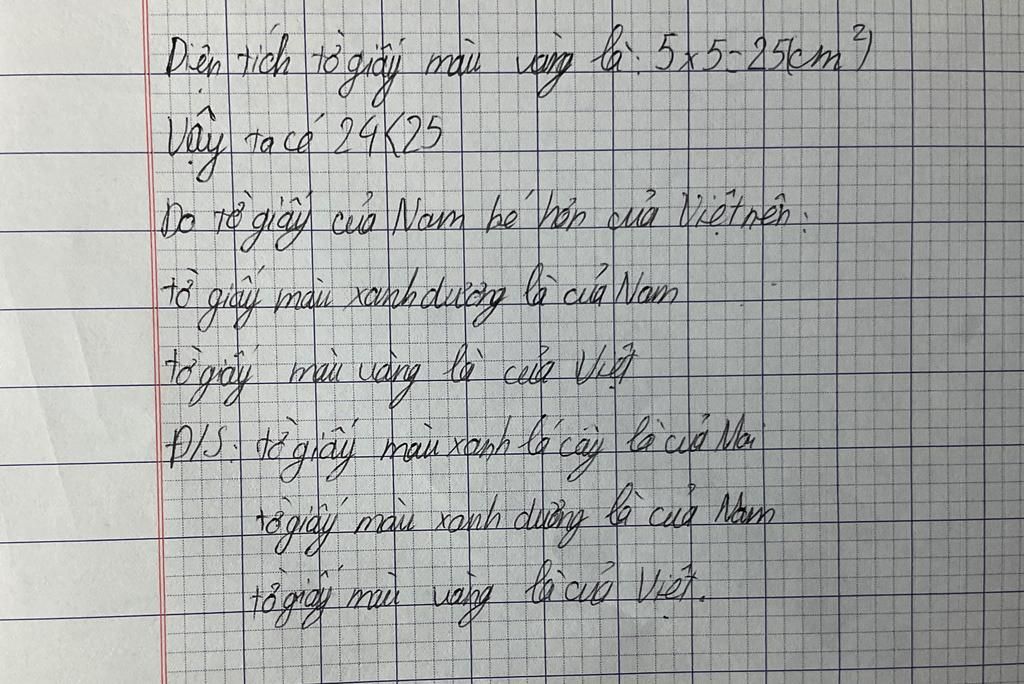 Diện tích tờ giấy màu vàng là: 5x5=25(cm²)
Vậy ta có 24<25
Do tờ giấy của Nam bé hơn của Việt nên:
tờ giấy màu xanh dương là của Nam
tờ giấy màu vàng là của Việt
Đ/S: tờ giấy màu xanh lá cây là của Mai
tờ giấy màu xanh dương là của Nam
tờ giấy màu vàng là của Việt.